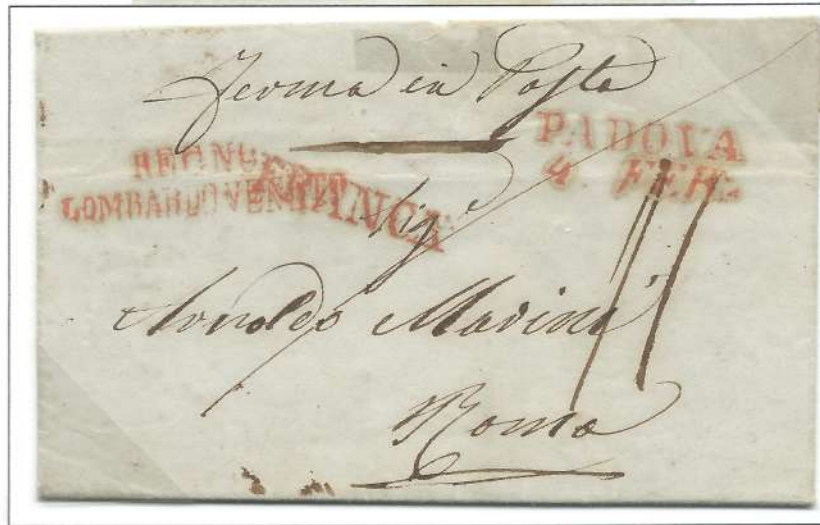 Ferma in Posta
PADOVA
4. FEB.
REGNO
LOMBARDO VENETO
FRANCA
Sig.e
Arnoldo Marini
Roma